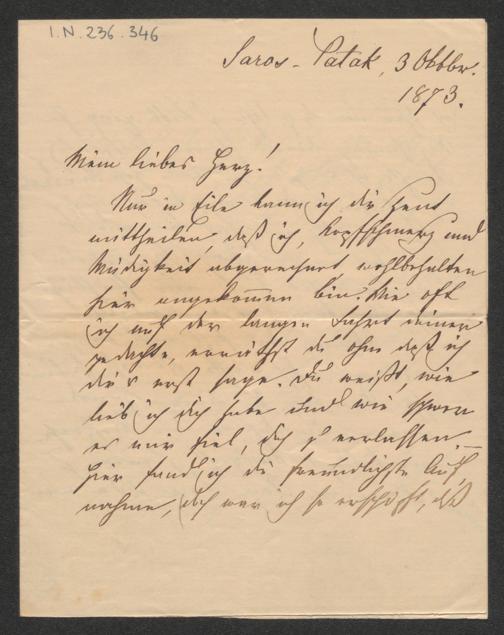 I.N. 236.346
Saros-Patak, 3 Oktbr.
1873.
Mein liebes Herz!
Nur in Eile kann ich dir heut
mittheilen, daß ich, Kopfschmerz und
Müdigkeit abgerechnet, wohlbehalten
hier angekommen bin. Wie oft
ich auf der langen Fahrt deiner
gedachte, erräthst du ohne daß ich
dir's erst sage. Du weißt, wie
lieb ich dich habe und wie schwer
es mir fiel, dich zu verlassen. –
Hier fand ich die freundlichste Auf-
nahme, doch war ich so erschöpft, daß